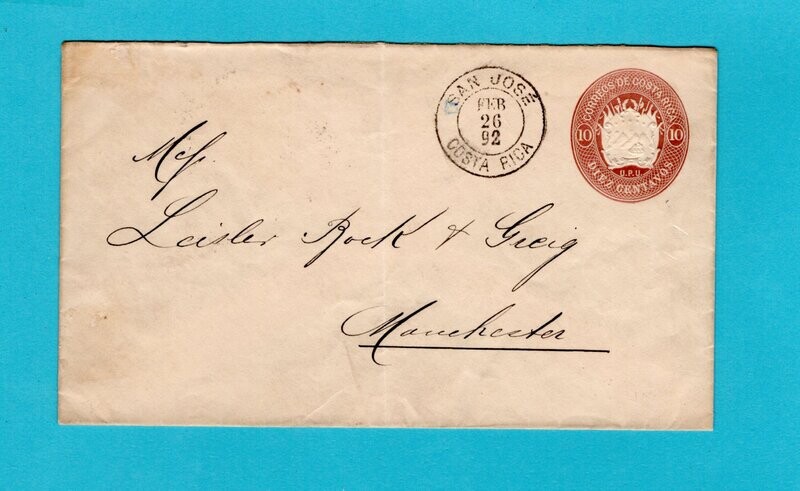 SAN JOSÉ
FEB
26
92
COSTA RICA
CORREOS DE COSTA RICA
10 10
U.P.U
DIEZ CENTAVOS
Mess.
Leisler Bock & Greig
Manchester